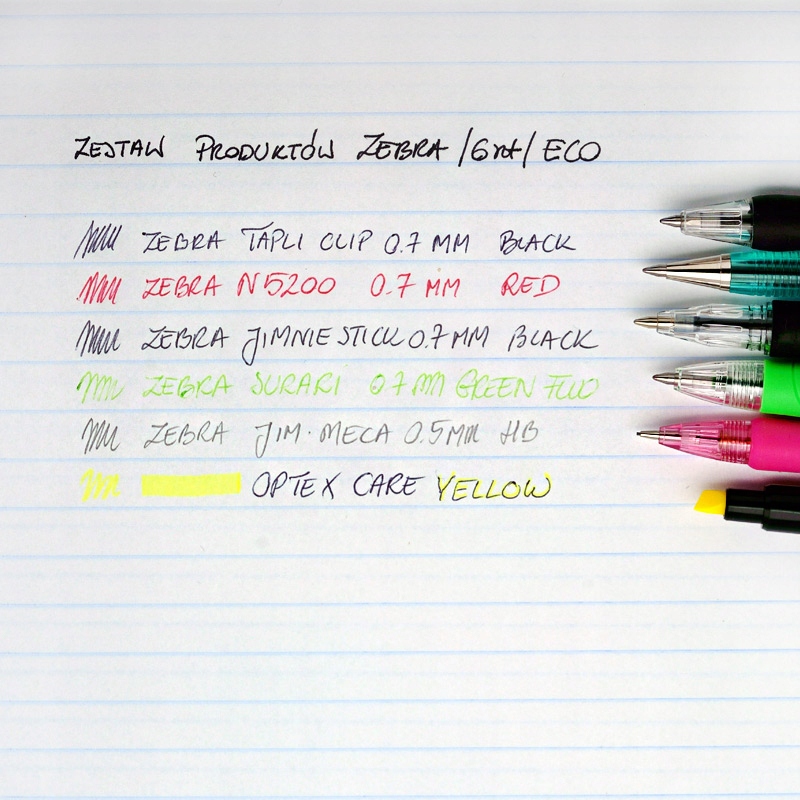 ZESTAW PRODUKTÓW ZEBRA /6szt/ ECO
ZEBRA TAPLI CLIP 0.7 MM BLACK
ZEBRA N5200 0.7 MM RED
ZEBRA JIMNIE STICK 0.7 MM BLACK
ZEBRA SURARI 0.7 MM GREEN FLUO
ZEBRA JIM-MECA 0.5 MM HB
OPTEX CARE YELLOW